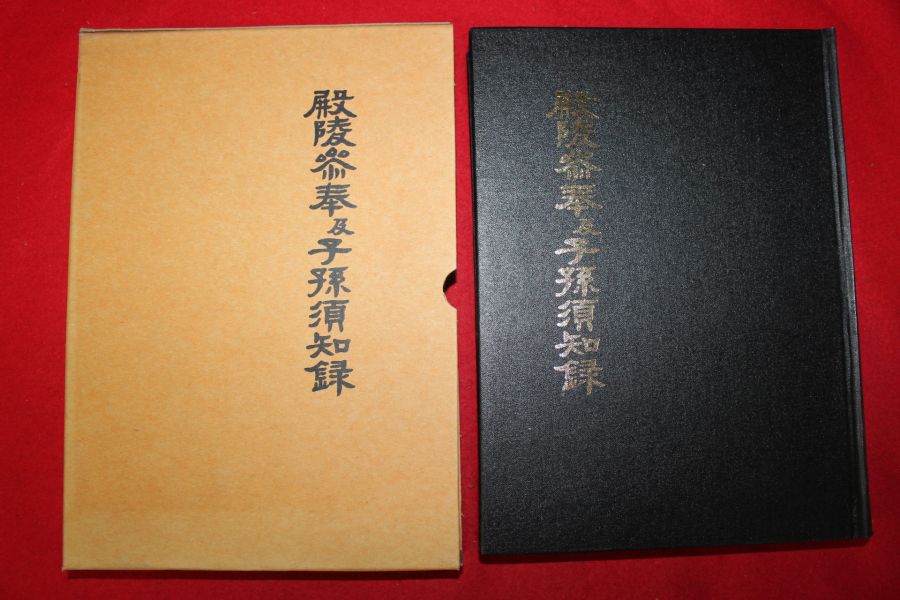 殿陵參奉及子孫須知録
殿陵參奉及子孫須知録